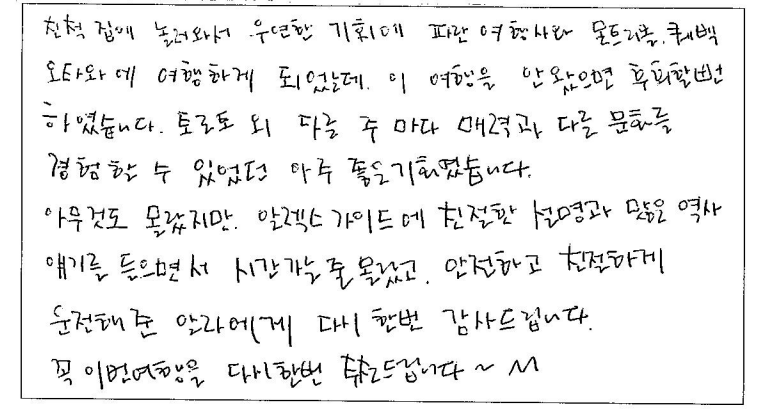 친척 집에 놀러와서 우연한 기회에 파란여행사와 몬트리올, 퀘벡
오타와에 여행하게 되었는데. 이 여행을 안왔으면 후회할뻔
하였습니다. 토론토 외 다른 주 마다 매력과 다른 문화를
경험할 수 있었던 아주 좋은기회였습니다.
아무것도 몰랐지만. 알렉스 가이드에 친절한 설명과 많은 역사
얘기를 들으면서 시간가는줄 몰랐고. 안전하고 친절하게
운전해준 알라에게 다시 한번 감사드립니다.
꼭 이번여행을 다시한번 추천드립니다 ~